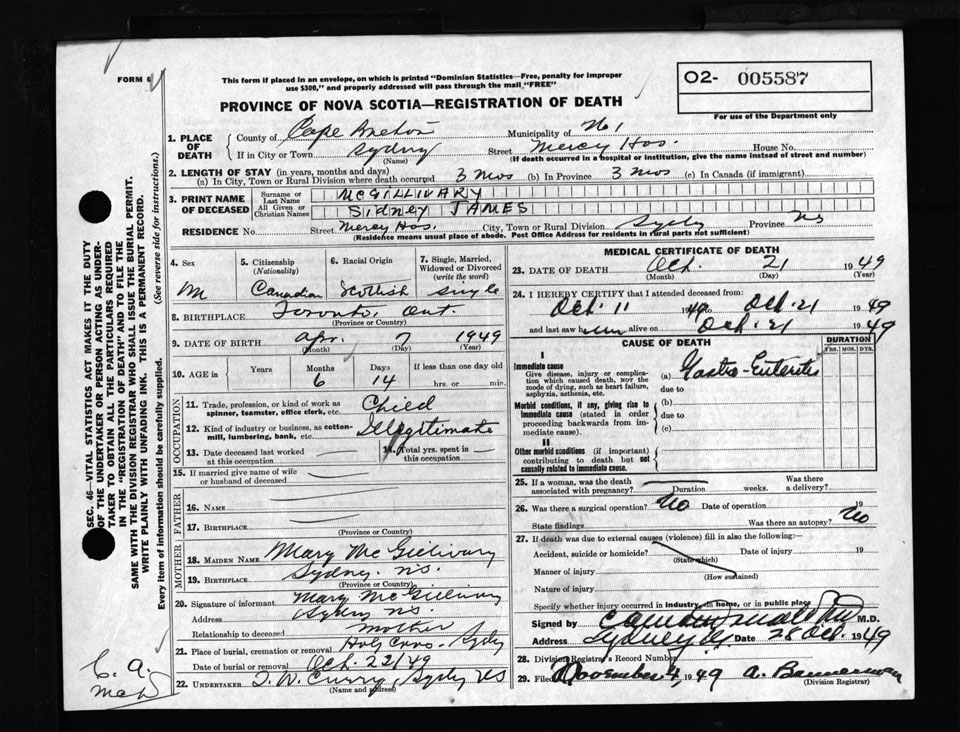 FORM 6
This form if placed in an envelope, on which is printed "Dominion Statistics—Free, penalty for improper
use $300," and properly addressed will pass through the mail "FREE"
O2- 005587
For use of the Department only
PROVINCE OF NOVA SCOTIA—REGISTRATION OF DEATH
1. PLACE OF DEATH
County of Cape Breton Municipality of No 1
If in City or Town Sydney Street Mercy Hos. House No.
(Name) (If death occurred in a hospital or institution, give the name instead of street and number)
2. LENGTH OF STAY (in years, months and days)
(a) In City, Town or Rural Division where death occurred 3 mos (b) In Province 3 mos (c) In Canada (if immigrant)
3. PRINT NAME OF DECEASED
Surname or Last Name MCGILLIVARY
All Given or Christian Names SIDNEY JAMES
RESIDENCE No. Street Mercy Hos. City, Town or Rural Division Sydney Province NS
(Residence means usual place of abode. Post Office Address for residents in rural parts not sufficient)
4. Sex M
5. Citizenship (Nationality) Canadian
6. Racial Origin Scottish
7. Single, Married, Widowed or Divorced (write the word) Single
8. BIRTHPLACE Toronto, Ont.
(Province or Country)
9. DATE OF BIRTH Apr. 7 1949
(Month) (Day) (Year)
10. AGE in Years Months 6 Days 14 If less than one day old
hrs. or min.
OCCUPATION
11. Trade, profession or kind of work as spinner, teamster, office clerk, etc. Child
12. Kind of industry or business, as cotten-mill, lumbering, bank, etc. Illegitimate
13. Date deceased last worked at this occupation
14. Total yrs. spent in this occupation
15. If married give name of wife or husband of deceased
FATHER
16. Name
17. BIRTHPLACE
(Province or Country)
MOTHER
18. MAIDEN NAME Mary McGillivary
19. BIRTHPLACE Sydney. N.S.
(Province or Country)
20. Signature of informant Mary McGillivary
Address Sydney NS.
Relationship to deceased Mother
21. Place of burial, cremation or removal Holy Cross, Sydney
Date of burial or removal Oct. 22/49
22. UNDERTAKER T. W. Curry, Sydney NS
(Name and address)
MEDICAL CERTIFICATE OF DEATH
23. DATE OF DEATH Oct. 21 1949
(Month) (Day) (Year)
24. I HEREBY CERTIFY that I attended deceased from:
Oct. 11 1949 to Oct. 21 1949
and last saw him alive on Oct. 21 1949
CAUSE OF DEATH
DURATION
YRS. MOS. DYS.
I
Immediate cause
Give disease, injury or complication which caused death, NOT the mode of dying, such as heart failure, asphyxia, asthenia, etc.
(a) Gastro-Enteritis
due to
Morbid conditions, if any, giving rise to immediate cause (stated in order proceeding backwards from immediate cause).
(b)
due to
(c)
II
Other morbid conditions (if important) contributing to death but not causally related to immediate cause.
25. If a woman, was the death associated with pregnancy? Duration weeks. Was there a delivery?
26. Was there a surgical operation? No Date of operation 19
State findings Was there an autopsy? No
27. If death was due to external causes (violence) fill in also the following:—
Accident, suicide or homicide? Date of injury 19
(State which)
Manner of injury
(How sustained)
Nature of injury
Specify whether injury occurred in industry, in home, or in public place
Signed by M.D.
Address Sydney Date 28 Oct. 1949
28. Division Registrar's Record Number
29. Filed November 4, 1949 A. Bannerman
(Division Registrar)
SEC. 46—VITAL STATISTICS ACT MAKES IT THE DUTY
OF THE UNDERTAKER OR PERSON ACTING AS UNDER-
TAKER TO OBTAIN ALL THE PARTICULARS REQUIRED
IN THE "REGISTRATION OF DEATH" AND TO FILE THE
SAME WITH THE DIVISION REGISTRAR WHO SHALL ISSUE THE BURIAL PERMIT.
WRITE PLAINLY WITH UNFADING INK. THIS IS A PERMANENT RECORD.
Every item of information should be carefully supplied. (See reverse side for instructions.)